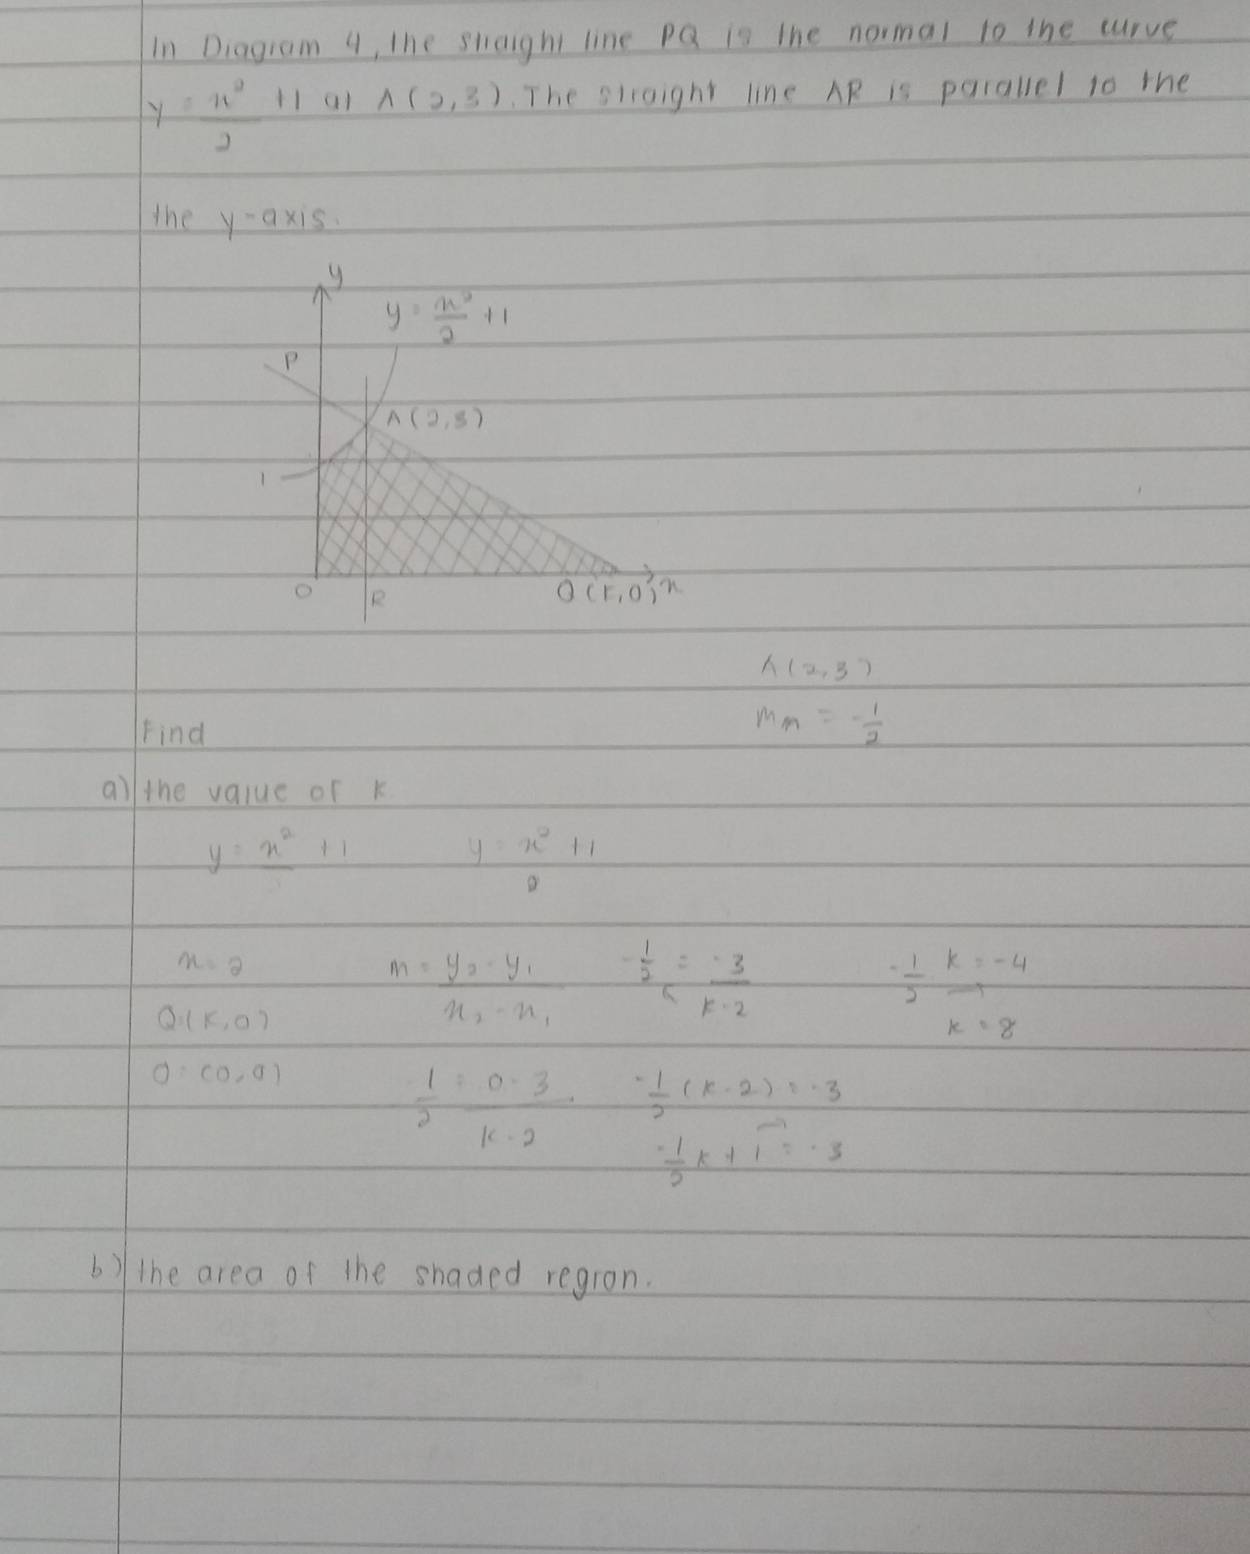 In Diagram 4, the straight line PQ is the normal to the curve
y = x²/2 + 1 at A(2,3). The straight line AR is parallel to the
the y-axis.
y
y = x²/2 + 1
P
A(2,3)
1
O
R
Q(k,0)
x
A(2,3)
Find
mm = -1/2
a) the value of k
y = x² + 1
y = x²/2 + 1
x = 2
m = y₂ - y₁ / x₂ - x₁
-1/2 = -3 / k - 2
-1/2 k = -4
Q(k,0)
k = 8
O = (0,0)
-1/2 = 0 - 3 / k - 2
-1/2 (k - 2) = -3
-1/2 k + 1 = -3
b) the area of the shaded region.